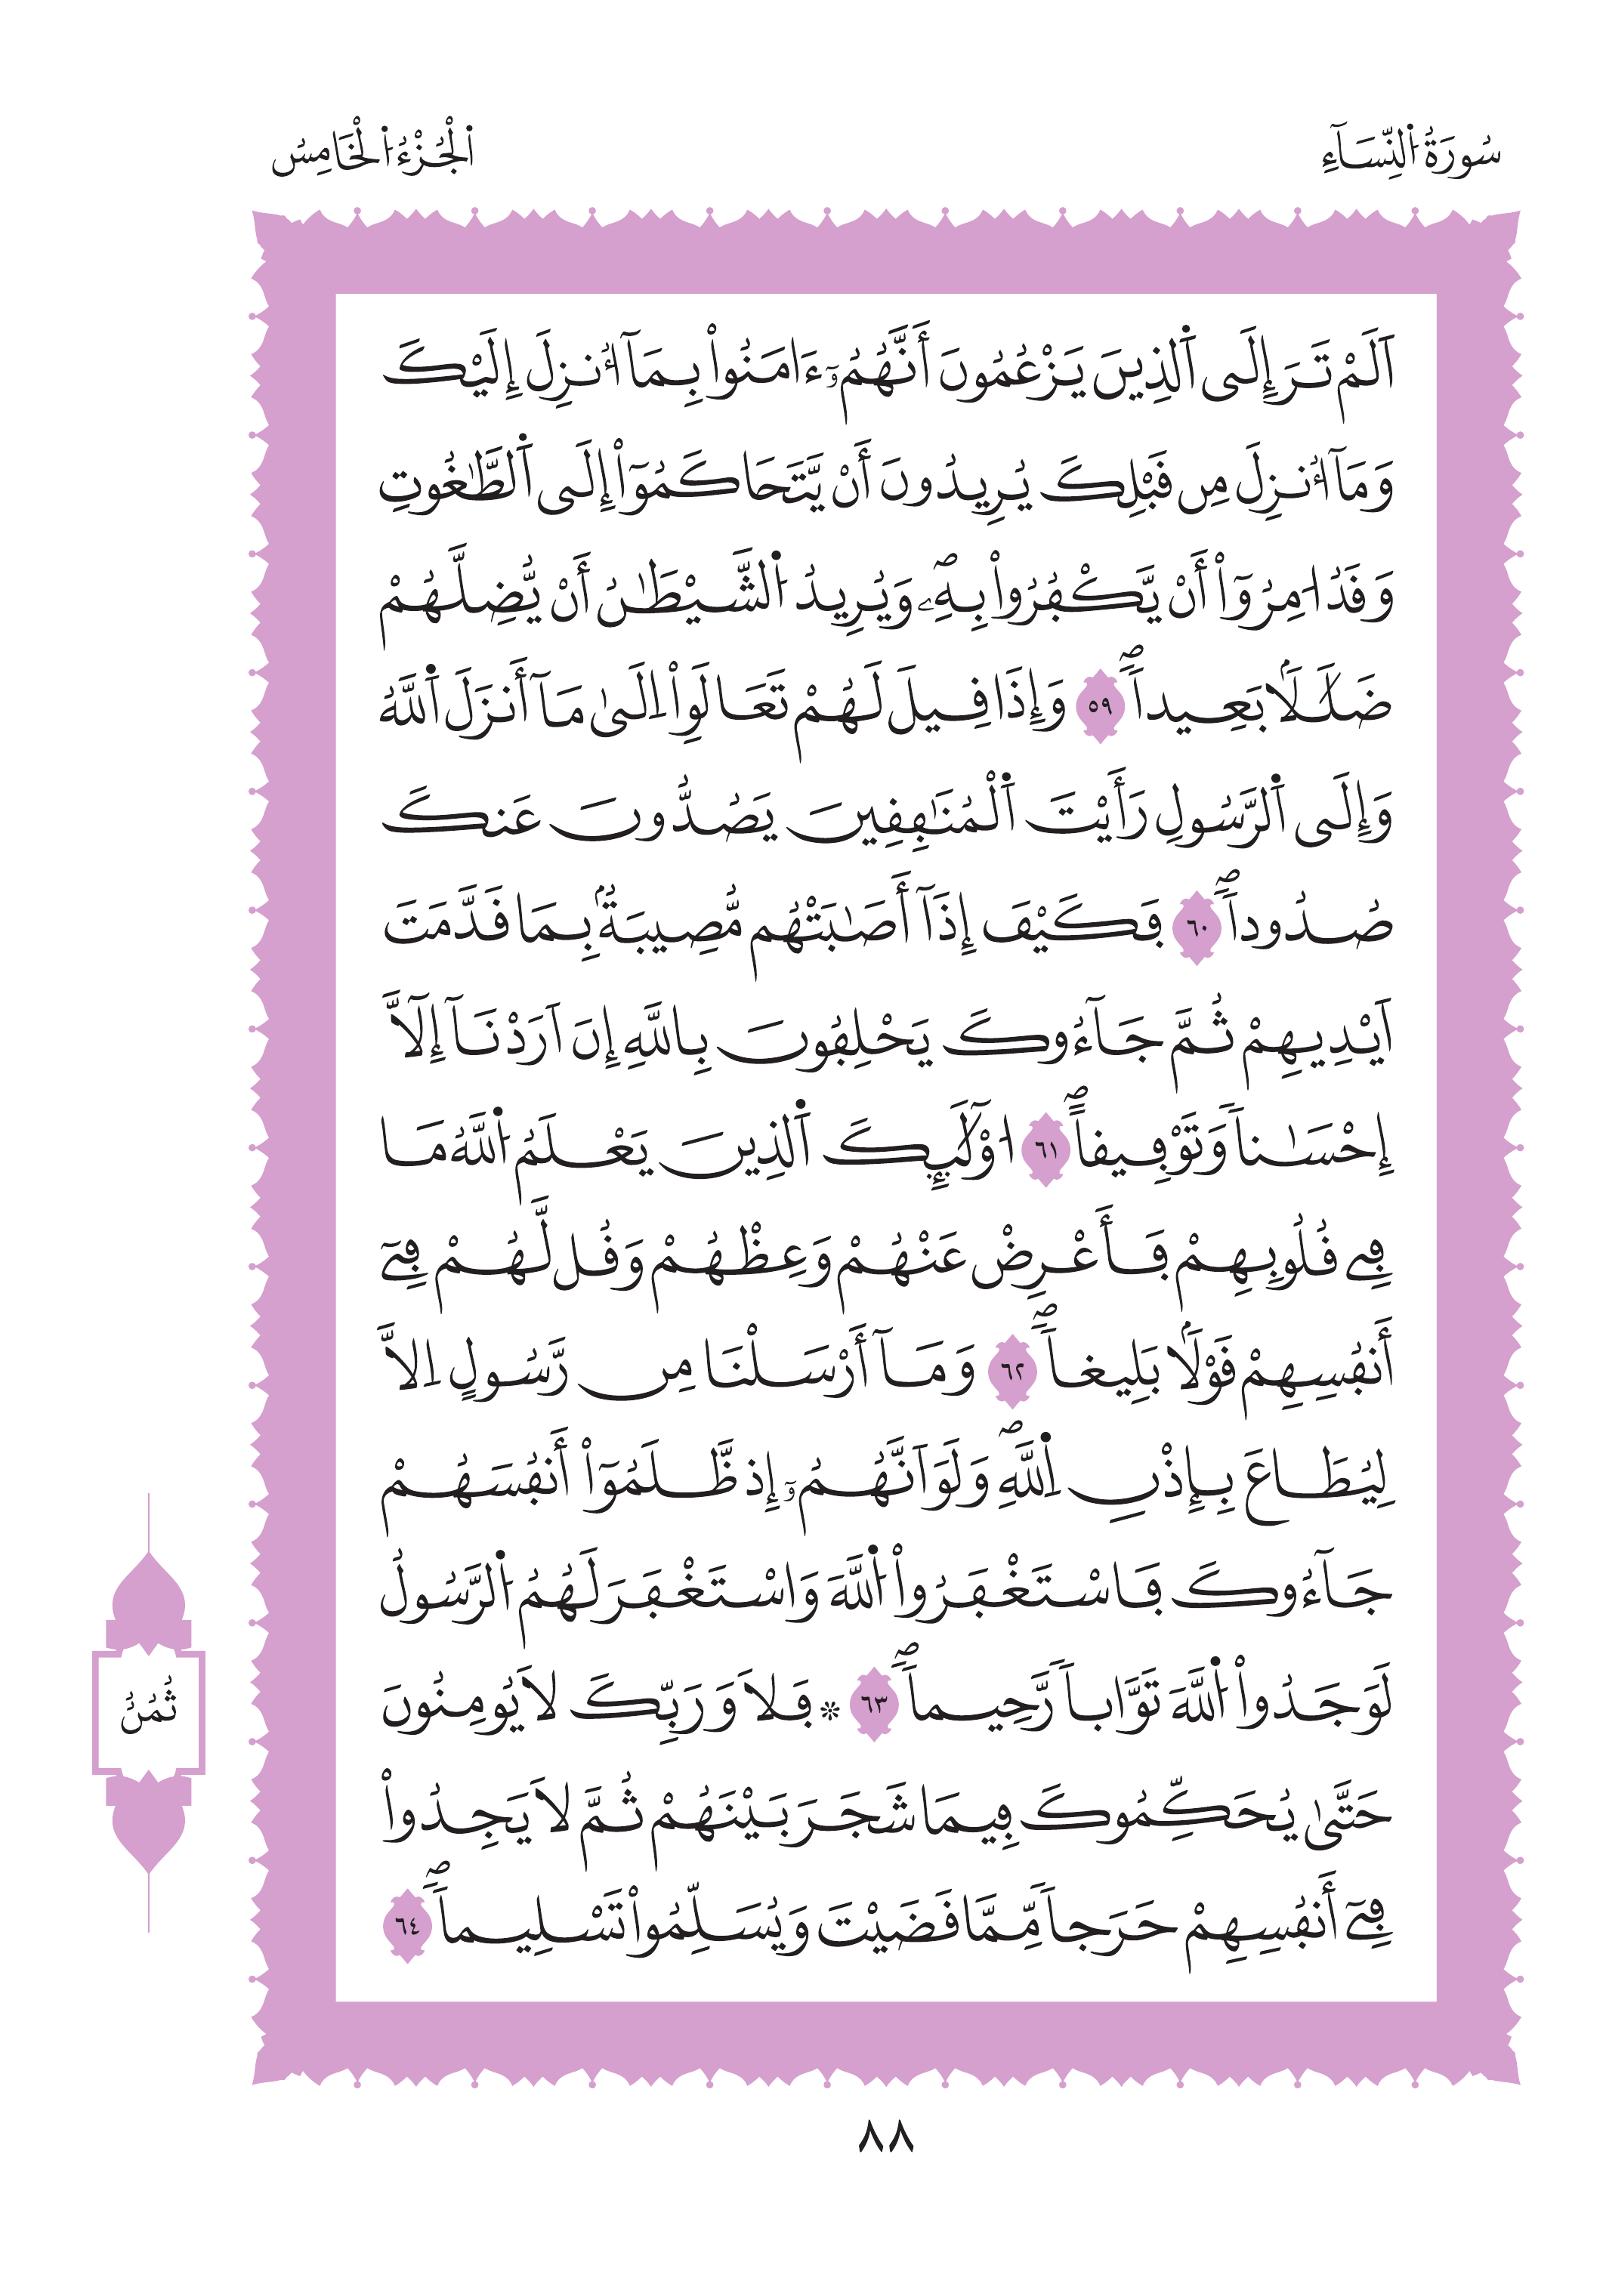 سُورَةُ اُ۬لنِّسَآءِ
اُ۬لْجُزْءُ اُ۬لْخَامِسُ
اَلَمْ تَرَ إِلَى اَ۬لذِينَ يَزْعُمُونَ أَنَّهُمُۥٓ ءَامَنُواْ بِمَآ أُنزِلَ إِلَيْكَ
وَمَآ أُنزِلَ مِن قَبْلِكَ يُرِيدُونَ أَنْ يَّتَحَاكَمُوٓاْ إِلَى اَ۬لطَّٰغُوتِ
وَقَدُ ا۟مِرُوٓاْ أَنْ يَّكْفُرُواْ بِهِۦۖ وَيُرِيدُ اُ۬لشَّيْطَٰنُ أَنْ يُّضِلَّهُمْ
ضَلَٰلَاۢ بَعِيداٗۖ ٥٩ وَإِذَا قِيلَ لَهُمْ تَعَالَوِاْ اِلَىٰ مَآ أَنزَلَ اَ۬للَّهُ
وَإِلَى اَ۬لرَّسُولِ رَأَيْتَ اَ۬لْمُنَٰفِقِينَ يَصُدُّونَ عَنكَ
صُدُوداٗۖ ٦٠ فَكَيْفَ إِذَآ أَصَٰبَتْهُم مُّصِيبَةُۢ بِمَا قَدَّمَتَ
اَيْدِيهِمْ ثُمَّ جَآءُوكَ يَحْلِفُونَ بِاللَّهِ إِنَ اَرَدْنَآ إِلَّآ
إِحْسَٰناٗ وَتَوْفِيقاًۖ ٦١ ا۟وْلَٰٓئِكَ اَ۬لذِينَ يَعْلَمُ اُ۬للَّهُ مَا
فِے قُلُوبِهِمْ فَأَعْرِضْ عَنْهُمْ وَعِظْهُمْ وَقُل لَّهُمْ فِےٓ
أَنفُسِهِمْ قَوْلَاۢ بَلِيغاٗۖ ٦٢ وَمَآ أَرْسَلْنَا مِن رَّسُولٍ اِلَّا
لِيُطَاعَ بِإِذْنِ اِ۬للَّهِۖ وَلَوَ اَنَّهُمُۥٓ إِذ ظَّلَمُوٓاْ أَنفُسَهُمْ
جَآءُوكَ فَاسْتَغْفَرُواْ اُ۬للَّهَ وَاسْتَغْفَرَ لَهُمُ اُ۬لرَّسُولُ
لَوَجَدُواْ اُ۬للَّهَ تَوَّاباٗ رَّحِيماٗۖ ٦٣ ۞ فَلَا وَرَبِّكَ لَا يُومِنُونَ
حَتَّىٰ يُحَكِّمُوكَ فِيمَا شَجَرَ بَيْنَهُمْ ثُمَّ لَا يَجِدُواْ
فِےٓ أَنفُسِهِمْ حَرَجاٗ مِّمَّا قَضَيْتَ وَيُسَلِّمُواْ تَسْلِيماٗۖ ٦٤
ثُمُنُ
٨٨